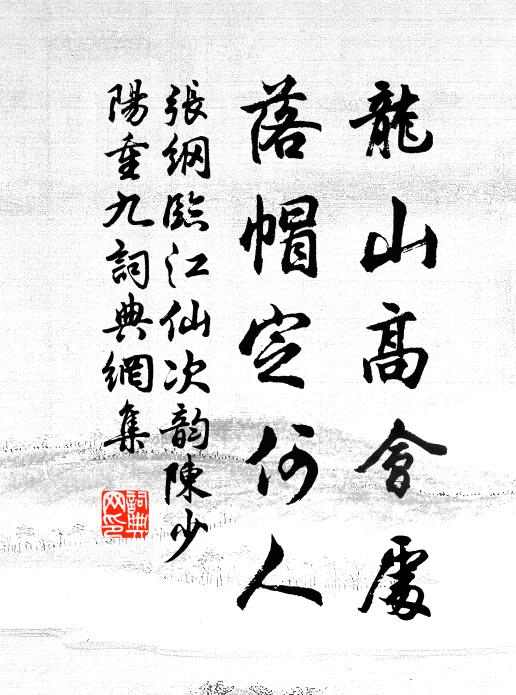 龍山高會處
落帽定何人
張綱臨江仙次韵陳少
陽重九詞典網集
詞典网印